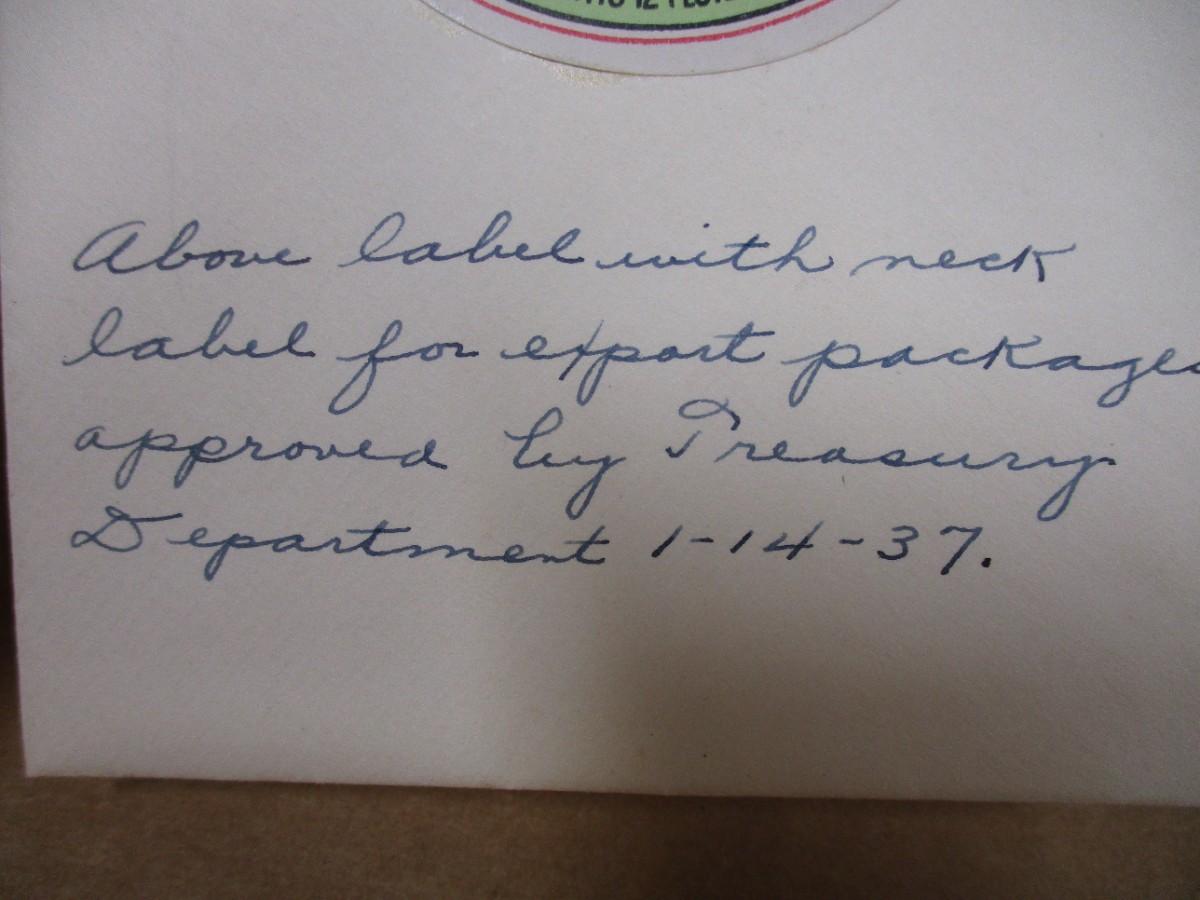 Above label with neck
label for export packages
approved by Treasury
Department 1-14-37.